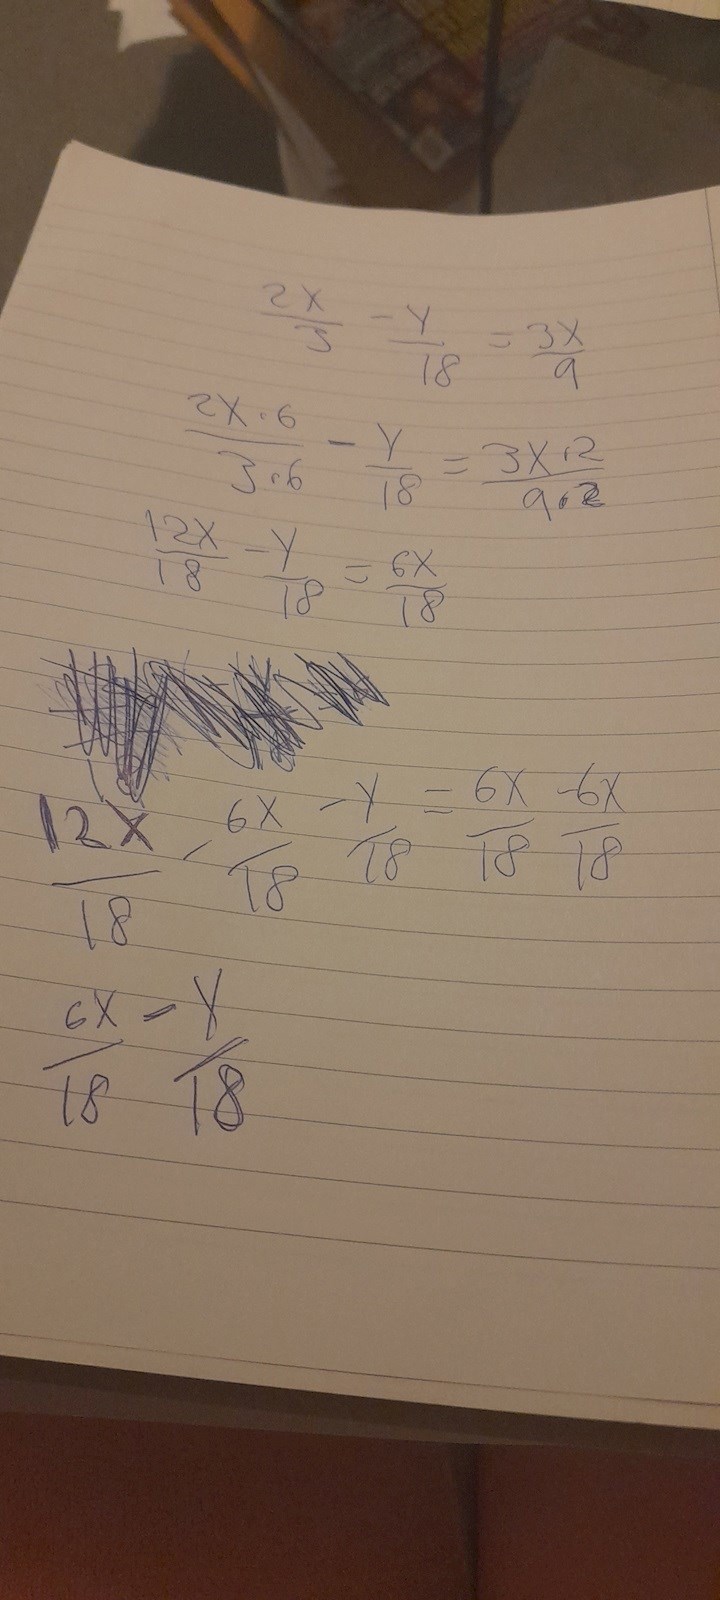 2x/3 - y/18 = 3x/9
2x·6/3·6 - y/18 = 3x·2/9·2
12x/18 - y/18 = 6x/18
12x/18 - 6x/18 - y/18 = 6x/18 - 6x/18
6x/18 - y/18